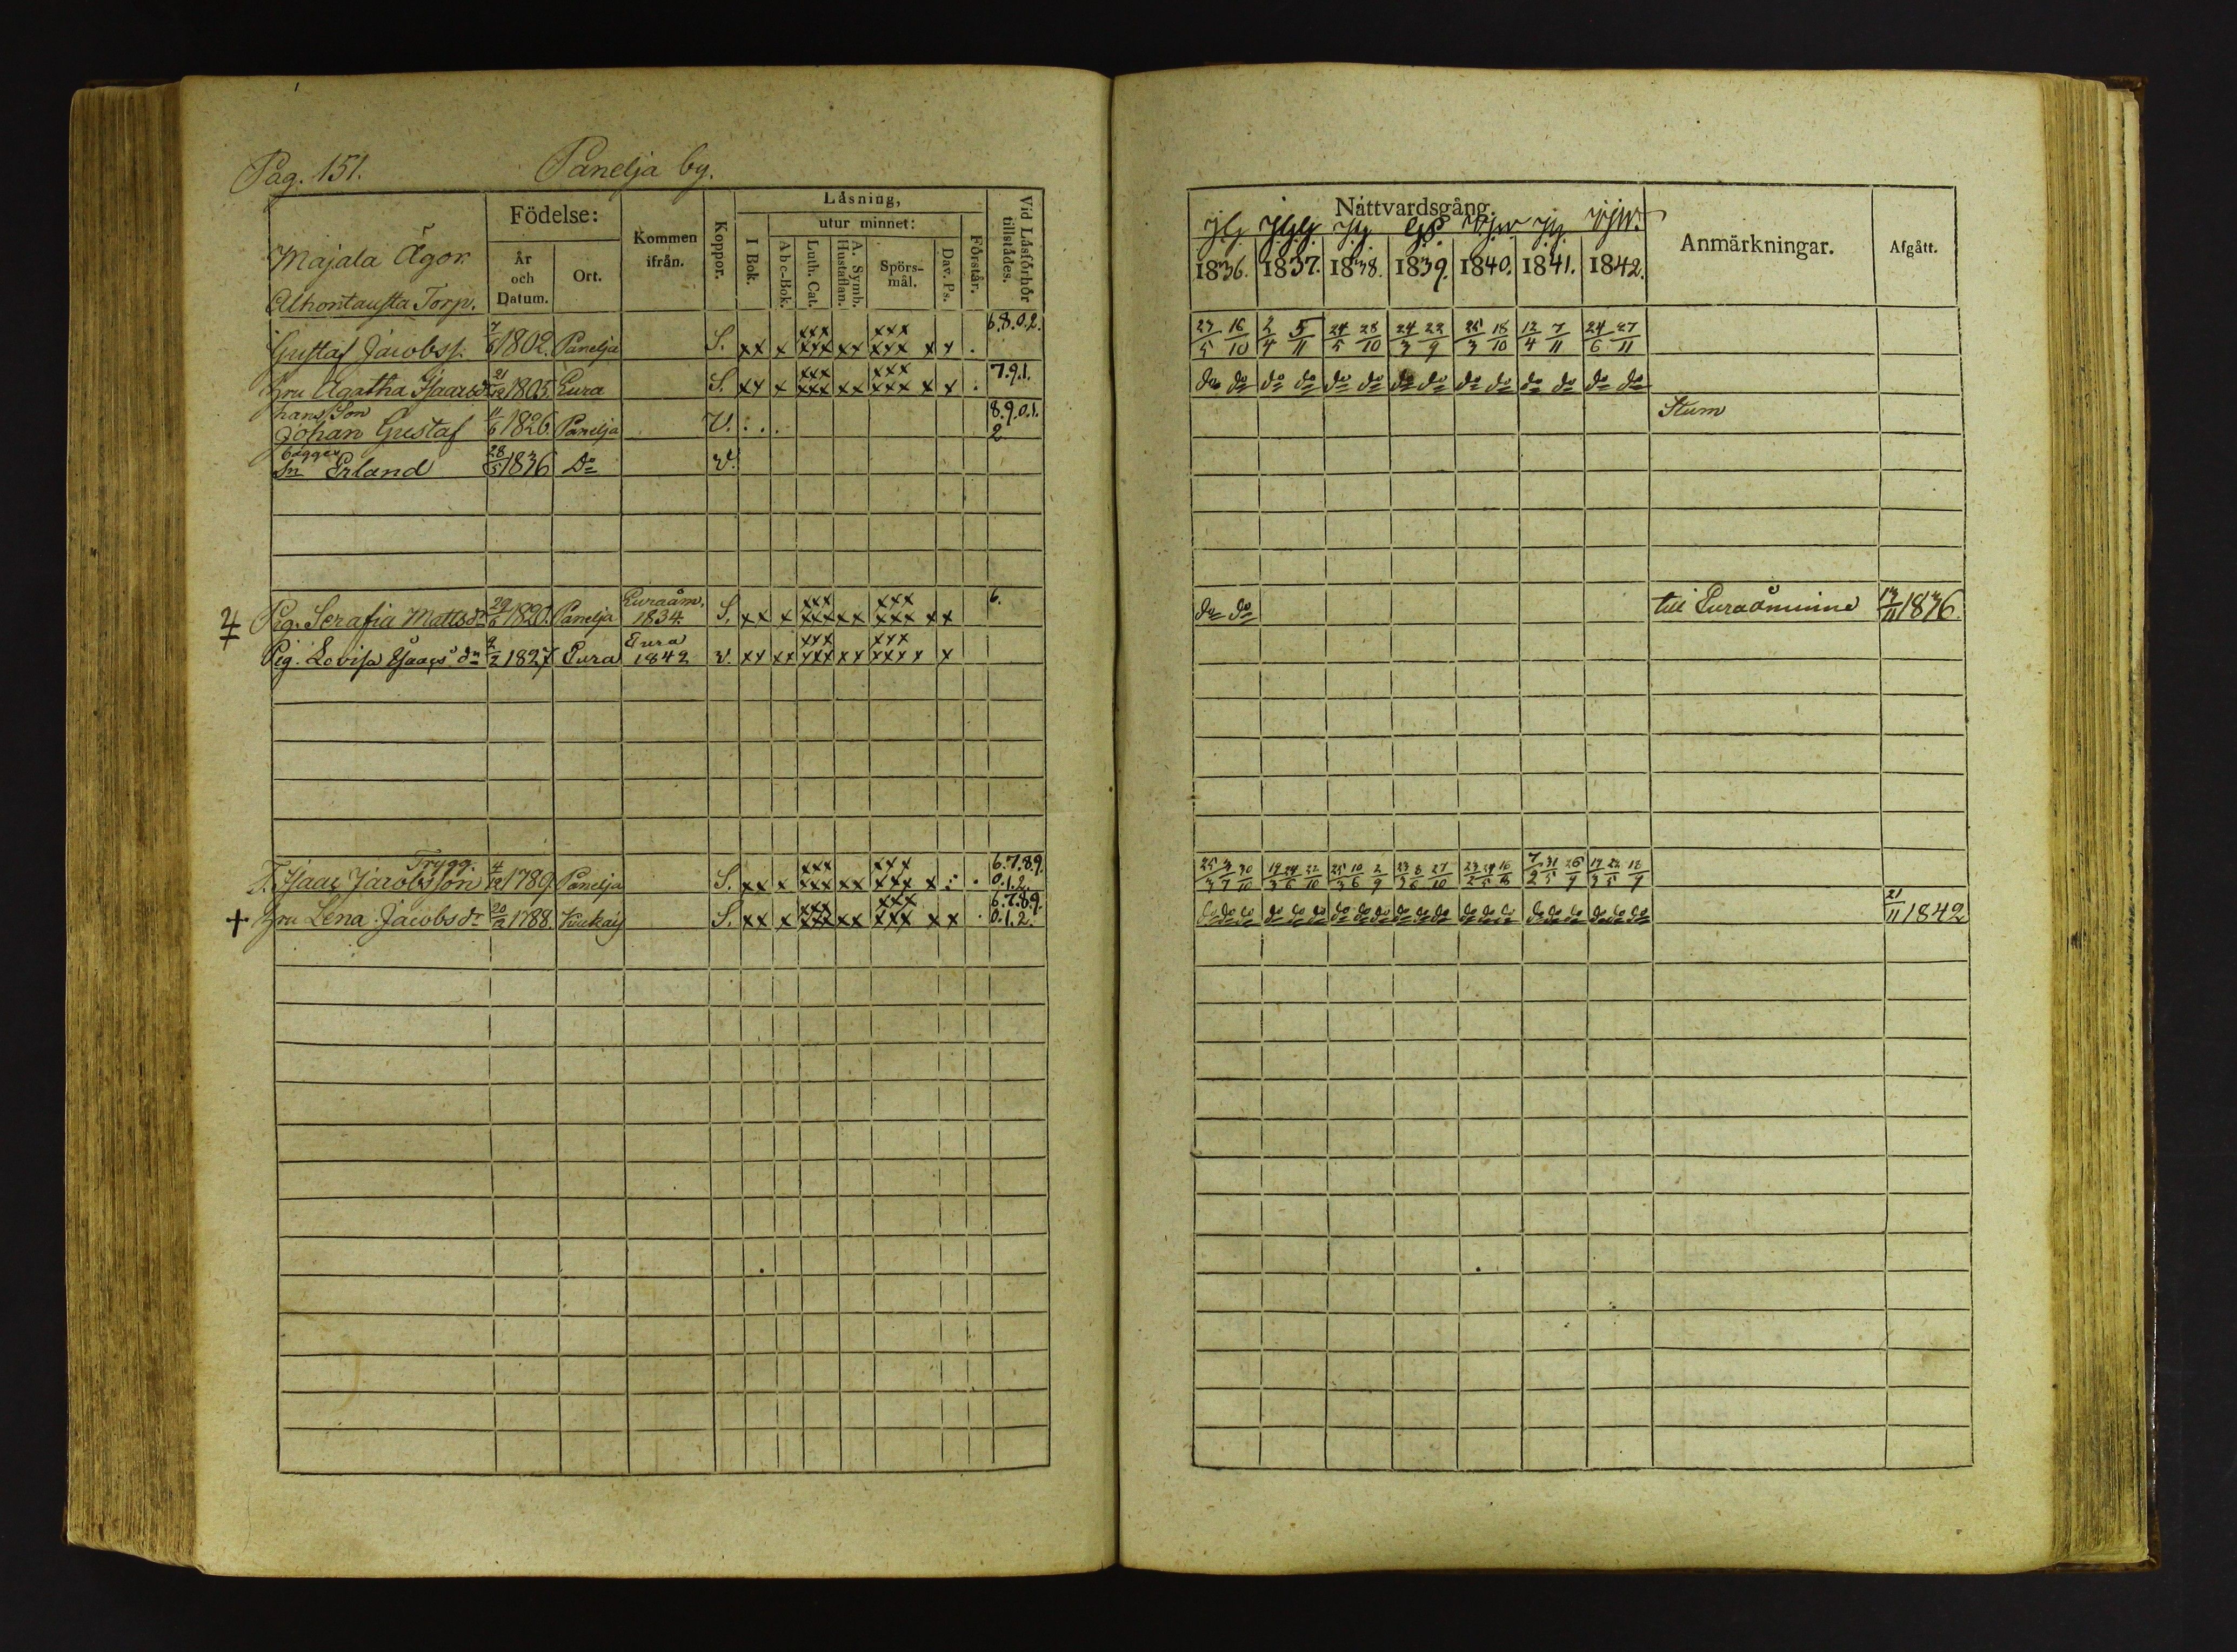 Pag. 151. Panelja by.
Majala Ägor.
Alhontausta Torp.
Födelse:
År och Datum.
Ort.
Kommen ifrån.
Koppor.
Läsning,
utur minnet:
I Bok.
Abc-Bok.
Luth. Cat.
A. Symb. Hustaflan.
Spörsmål.
Dav. Ps.
Förstår.
Vid Läsförhör tillstädes.
Gustaf Jacobss. 1802. Panelja S. xx x xxx xxx xx xxx xxx x x . 6.8.0.2.
Hru Agatha Isaacsdr 21/12 1805. Eura S. xx x xxx xxx xx xxx xxx x x . 7.9.1.
hans Son
Johan Gustaf 11/6 1826. Panelja V. : . . 8.9.0.1.
2
bägges
Sn Erland 28/5 1836 Do v.
Pig. Serafia Mattsdr 29/6 1820. Panelja Euraåm. 1834. S. xx x xxx xxx xx xxx xxx x x 6.
Pig. Lovisa Isaacs dr 9/2 1827 Eura Eura 1842 v. xx xx xxx xxx xx xxx xxx x x
Trygg.
T. Isaac Jacobsson 4/12 1789. Panelja S. xx x xxx xxx xx xxx xxx x : . 6.7.8.9.
0.1.2.
+ Hru Lena Jacobsdr 20/2 1788. S. xx x xxx xxx xx xxx xxx x x . 6.7.8.9.
0.1.2.
Nattvardsgång.
1836. 1837. 1838. 1839. 1840. 1841. 1842.
Anmärkningar.
Afgått.
27/5 16/10 2/4 5/11 24/5 28/10 24/3 22/9 25/3 18/10 12/4 7/11 24/6 27/11
do do do do do do do do do do do do do do
Stum
do do till Euraåminne 13/11 1836.
25/3 3/7 30/10 19/3 24/6 22/10 25/3 10/6 2/9 23/3 8/6 27/10 7/2 31/5 26/9 13/3 22/5 18/9
do do do do do do do do do do do do do do do do do do do do do 21/11 1842